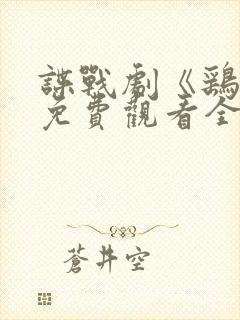 諜戰劇《鶏
免費觀看全
蒼井空